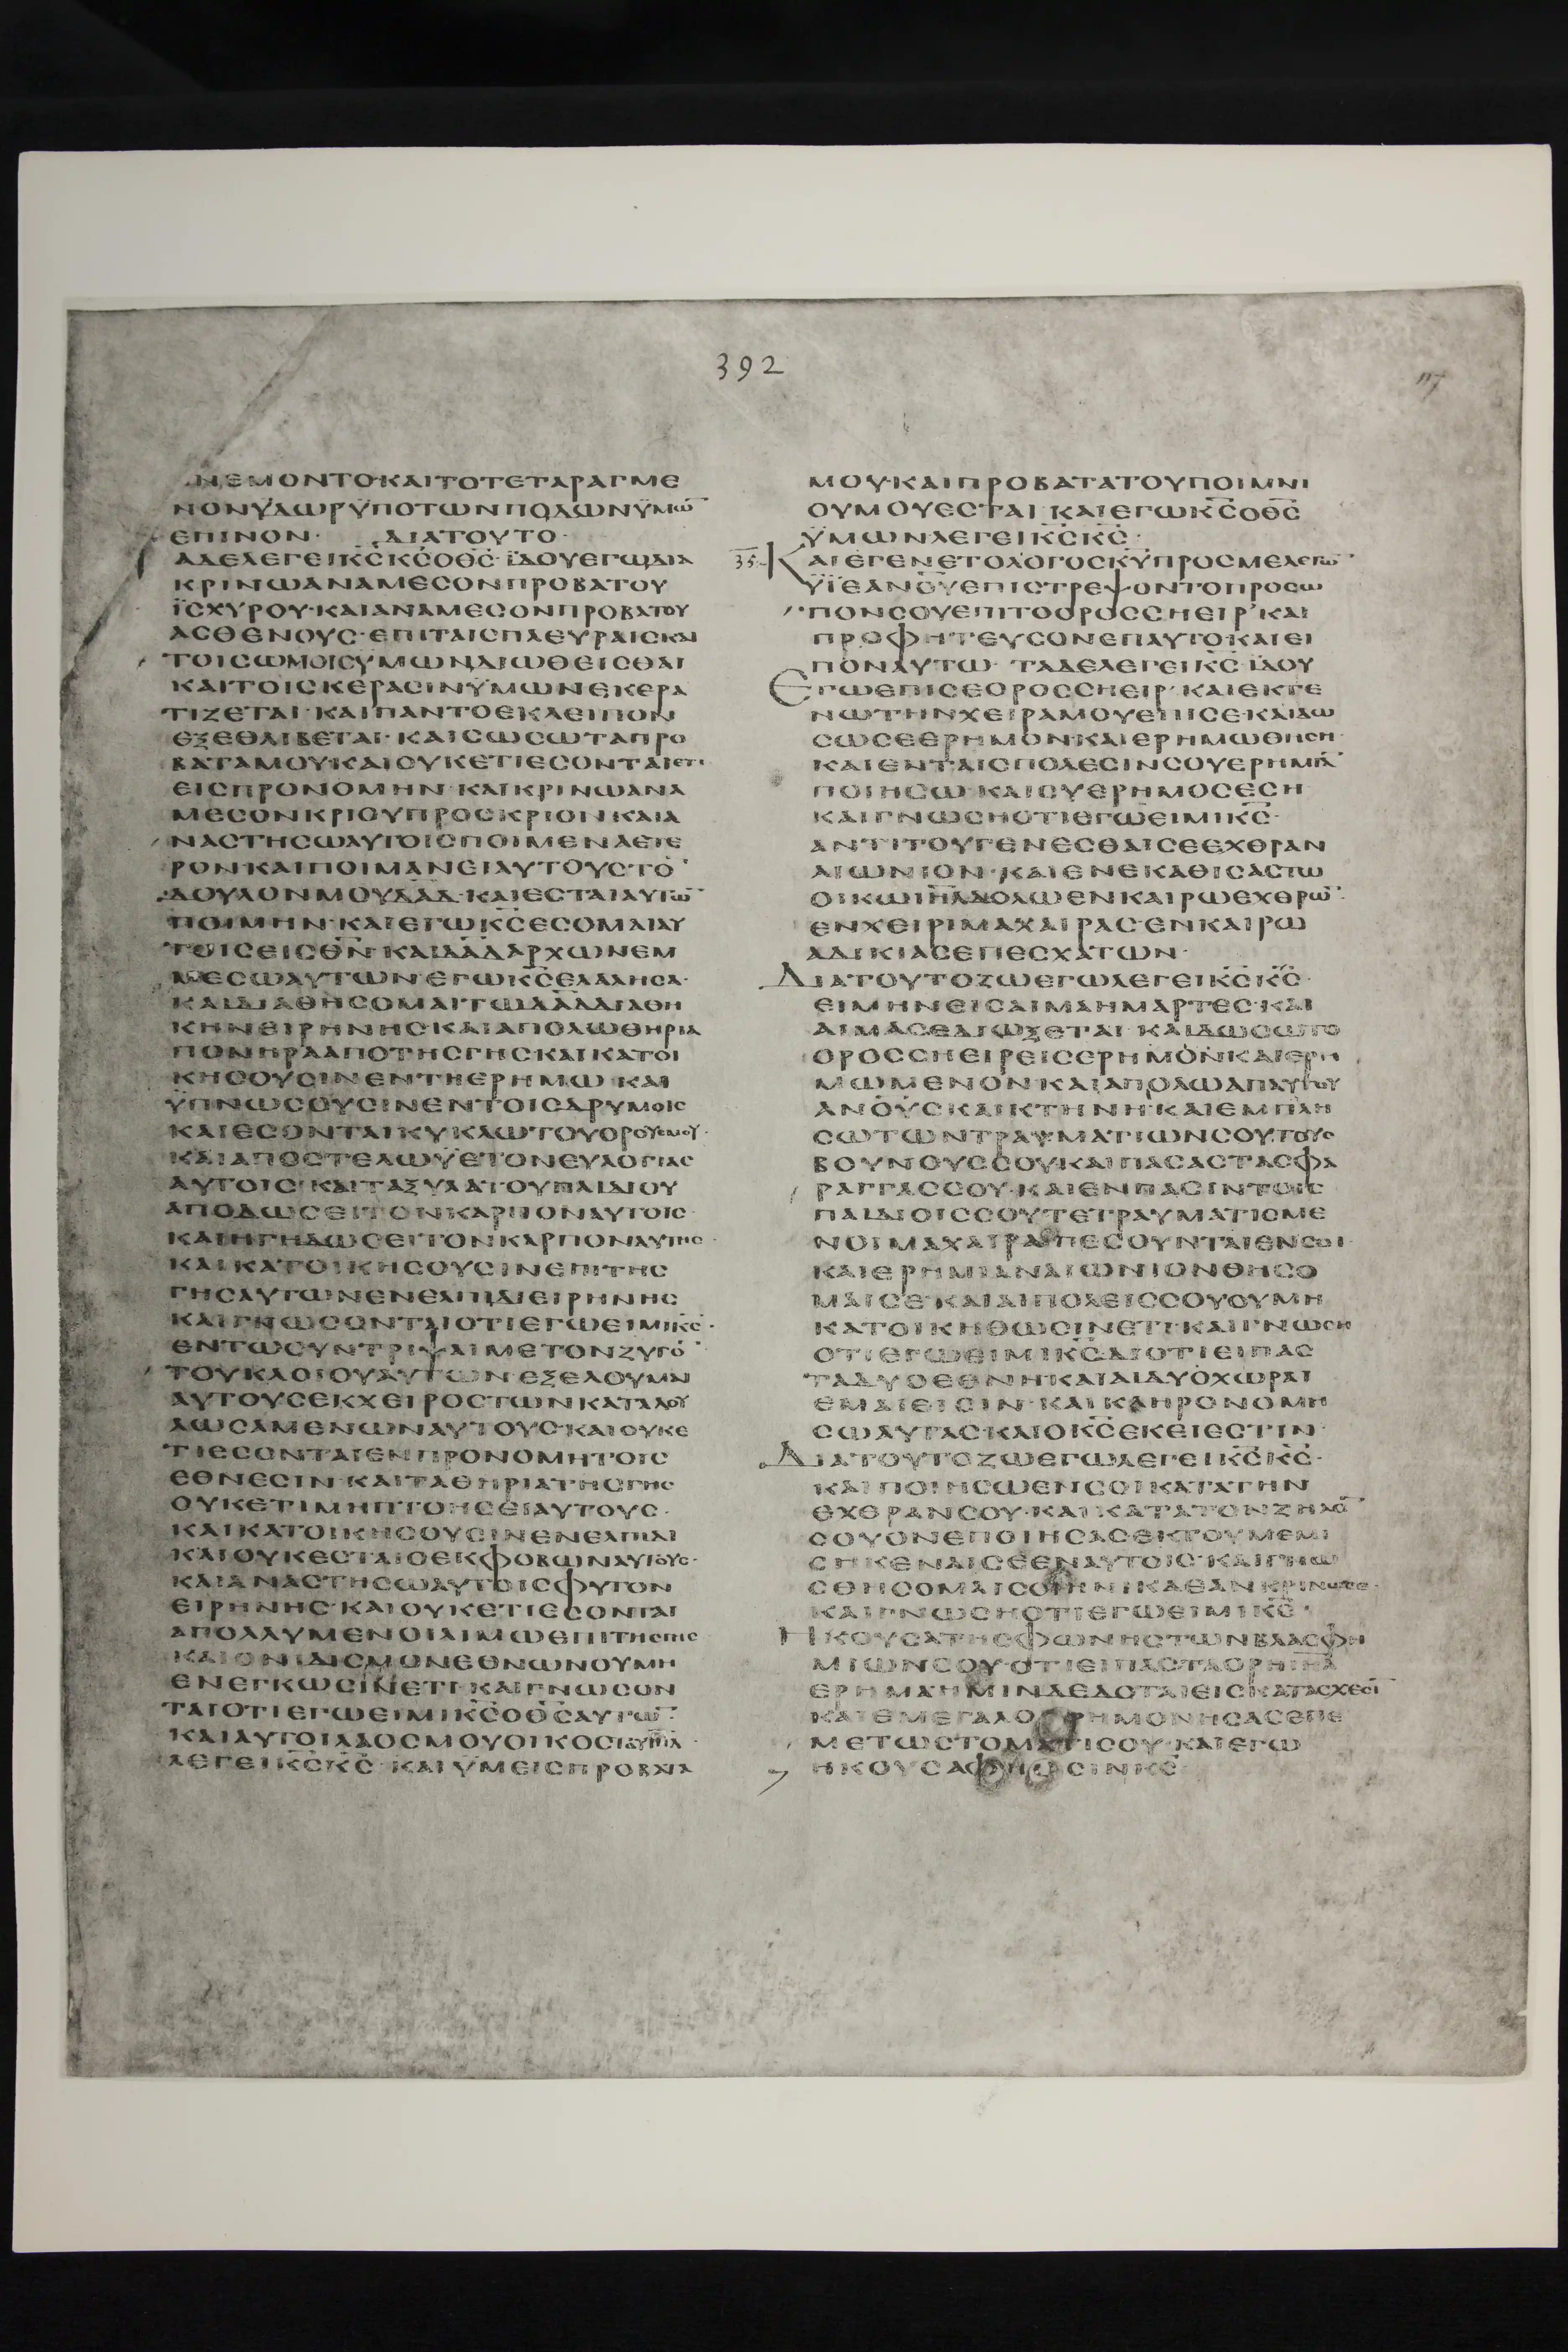 392
ΝΕΜΟΝΤΟ·ΚΑΙΤΟΤΕΤΑΡΑΓΜΕ
ΝΟΝΫΔΩΡΫΠΟΤΩΝΠΟΔΩΝΫΜΩ̅
ΕΠΙΝΟΝ· ΔΙΑΤΟΥΤΟ·
ΑΔΕΛΕΓΕΙΚ̅Σ̅Κ̅Σ̅ΟΘ̅Σ̅·ΪΔΟΥΕΓΩΔΙΑ
ΚΡΙΝΩΑΝΑΜΕΣΟΝΠΡΟΒΑΤΟΥ
ΪΣΧΥΡΟΥ·ΚΑΙΑΝΑΜΕΣΟΝΠΡΟΒΑΤΟΥ
ΑΣΘΕΝΟΥΣ·ΕΠΙΤΑΙΣΠΛΕΥΡΑΙΣΚΑΙ
ΤΟΙΣΩΜΟΙΣΥΜΩΝΔΙΩΘΕΙΣΘΑΙ
ΚΑΙΤΟΙΣΚΕΡΑΣΙΝΫΜΩΝΕΚΕΡΑ
ΤΙΖΕΤΑΙ·ΚΑΙΠΑΝΤΟΕΚΛΕΙΠΟΝ
ΕΞΕΘΛΙΒΕΤΑΙ·ΚΑΙΣΩΣΩΤΑΠΡΟ
ΒΑΤΑΜΟΥ·ΚΑΙΟΥΚΕΤΙΕΣΟΝΤΑΙΕΤΙ
ΕΙΣΠΡΟΝΟΜΗΝ·ΚΑΙΚΡΙΝΩΑΝΑ
ΜΕΣΟΝΚΡΙΟΥΠΡΟΣΚΡΙΟΝ·ΚΑΙΑ
ΝΑΣΤΗΣΩΑΥΤΟΙΣΠΟΙΜΕΝΑΕΤΕ
ΡΟΝ·ΚΑΙΠΟΙΜΑΝΕΙΑΥΤΟΥΣΤΟ̅
ΔΟΥΛΟΝΜΟΥΔ̅Α̅Δ̅·ΚΑΙΕΣΤΑΙΑΥΤΩ̅
ΠΟΙΜΗΝ·ΚΑΙΕΓΩΚ̅Σ̅ΕΣΟΜΑΙΑΥ
ΤΟΙΣΕΙΣΘ̅Ν̅·ΚΑΙΔ̅Α̅Δ̅ΑΡΧΩΝΕΜ
ΜΕΣΩΑΥΤΩΝ·ΕΓΩΚ̅Σ̅ΕΛΑΛΗΣΑ·
ΚΑΙΔΙΑΘΗΣΟΜΑΙΤΩΔ̅Α̅Δ̅ΔΙΑΘΗ
ΚΗΝΕΙΡΗΝΗΣ·ΚΑΙΑΠΟΛΩΘΗΡΙΑ
ΠΟΝΗΡΑΑΠΟΤΗΣΓΗΣ·ΚΑΙΚΑΤΟΙ
ΚΗΣΟΥΣΙΝΕΝΤΗΕΡΗΜΩ·ΚΑΙ
ΫΠΝΩΣΟΥΣΙΝΕΝΤΟΙΣΔΡΥΜΟΙΣ
ΚΑΙΕΣΟΝΤΑΙΚΥΚΛΩΤΟΥΟΡΟΥΣΜΟΥ·
ΚΑΙΑΠΟΣΤΕΛΩΫΕΤΟΝΕΥΛΟΓΙΑΣ
ΑΥΤΟΙΣ·ΚΑΙΤΑΞΥΛΑΤΟΥΠΑΙΔΙΟΥ
ΑΠΟΔΩΣΕΙΤΟΝΚΑΡΠΟΝΑΥΤΟΙΣ·
ΚΑΙΗΓΗΔΩΣΕΙΤΟΝΚΑΡΠΟΝΑΥΤΗΣ·
ΚΑΙΚΑΤΟΙΚΗΣΟΥΣΙΝΕΠΙΤΗΣ
ΓΗΣΑΥΤΩΝΕΝΕΛΠΙΔΙΕΙΡΗΝΗΣ
ΚΑΙΓΝΩΣΟΝΤΑΙΟΤΙΕΓΩΕΙΜΙΚ̅Σ̅·
ΕΝΤΩΣΥΝΤΡΙΨΑΙΜΕΤΟΝΖΥΓΟ̅
ΤΟΥΚΛΟΙΟΥΑΥΤΩΝ·ΕΞΕΛΟΥΜΑΙ
ΑΥΤΟΥΣΕΚΧΕΙΡΟΣΤΩΝΚΑΤΑΔΟΥ
ΛΩΣΑΜΕΝΩΝΑΥΤΟΥΣ·ΚΑΙΟΥΚΕ
ΤΙΕΣΟΝΤΑΙΕΝΠΡΟΝΟΜΗΤΟΙΣ
ΕΘΝΕΣΙΝ·ΚΑΙΤΑΘΗΡΙΑΤΗΣΓΗΣ
ΟΥΚΕΤΙΜΗΠΤΟΗΣΕΙΑΥΤΟΥΣ·
ΚΑΙΚΑΤΟΙΚΗΣΟΥΣΙΝΕΝΕΛΠΙΔΙ
ΚΑΙΟΥΚΕΣΤΑΙΟΕΚΦΟΒΩΝΑΥΤΟΥΣ·
ΚΑΙΑΝΑΣΤΗΣΩΑΥΤΟΙΣΦΥΤΟΝ
ΕΙΡΗΝΗΣ·ΚΑΙΟΥΚΕΤΙΕΣΟΝΤΑΙ
ΑΠΟΛΛΥΜΕΝΟΙΛΙΜΩΕΠΙΤΗΣΓΗΣ
ΚΑΙΟΝΙΔΙΣΜΟΝΕΘΝΩΝΟΥΜΗ
ΕΝΕΓΚΩΣΙΝΕΤΙ·ΚΑΙΓΝΩΣΟΝ
ΤΑΙΟΤΙΕΓΩΕΙΜΙΚ̅Σ̅ΟΘ̅Σ̅ΑΥΤΩ̅
ΚΑΙΑΥΤΟΙΛΑΟΣΜΟΥΟΙΚΟΣΙ̅Η̅Λ̅·
ΛΕΓΕΙΚ̅Σ̅Κ̅Σ̅·ΚΑΙΫΜΕΙΣΠΡΟΒΑΤΑ
ΜΟΥ·ΚΑΙΠΡΟΒΑΤΑΤΟΥΠΟΙΜΝΙ
ΟΥΜΟΥΕΣΤΑΙ·ΚΑΙΕΓΩΚ̅Σ̅ΟΘ̅Σ̅
ΫΜΩΝΛΕΓΕΙΚ̅Σ̅Κ̅Σ̅·
35 ΚΑΙΕΓΕΝΕΤΟΛΟΓΟΣΚ̅Υ̅ΠΡΟΣΜΕΛΕΓΩ̅·
ΫΪΕΑΝ̅Ο̅Υ̅ΕΠΙΣΤΡΕΨΟΝΤΟΠΡΟΣΩ
ΠΟΝΣΟΥΕΠΙΤΟΟΡΟΣΣΗΕΙΡ·ΚΑΙ
ΠΡΟΦΗΤΕΥΣΟΝΕΠΑΥΤΟ·ΚΑΙΕΙ
ΠΟΝΑΥΤΩ·ΤΑΔΕΛΕΓΕΙΚ̅Σ̅·ΪΔΟΥ
ΕΓΩΕΠΙΣΕΟΡΟΣΣΗΕΙΡ·ΚΑΙΕΚΤΕ
ΝΩΤΗΝΧΕΙΡΑΜΟΥΕΠΙΣΕ·ΚΑΙΔΩ
ΣΩΣΕΕΡΗΜΟΝ·ΚΑΙΕΡΗΜΩΘΗΣΗ·
ΚΑΙΕΝΤΑΙΣΠΟΛΕΣΙΝΣΟΥΕΡΗΜΙΑ̅
ΠΟΙΗΣΩ·ΚΑΙΣΥΕΡΗΜΟΣΕΣΗ·
ΚΑΙΓΝΩΣΗΟΤΙΕΓΩΕΙΜΙΚ̅Σ̅·
ΑΝΤΙΤΟΥΓΕΝΕΣΘΑΙΣΕΕΧΘΡΑΝ
ΑΙΩΝΙΟΝ·ΚΑΙΕΝΕΚΑΘΙΣΑΣΤΩ
ΟΙΚΩΙ̅Η̅Λ̅ΔΟΛΩΕΝΚΑΙΡΩΕΧΘΡΩ̅·
ΕΝΧΕΙΡΙΜΑΧΑΙΡΑΣ·ΕΝΚΑΙΡΩ
ΑΔΙΚΙΑΣΕΠΕΣΧΑΤΩΝ·
ΔΙΑΤΟΥΤΟΖΩΕΓΩΛΕΓΕΙΚ̅Σ̅Κ̅Σ̅·
ΕΙΜΗΝΕΙΣΑΙΜΑΗΜΑΡΤΕΣ·ΚΑΙ
ΑΙΜΑΣΕΔΙΩΞΕΤΑΙ·ΚΑΙΔΩΣΩΤΟ
ΟΡΟΣΣΗΕΙΡΕΙΣΕΡΗΜΟΝ·ΚΑΙΕΡΗ
ΜΩΜΕΝΟΝ·ΚΑΙΑΠΟΛΩΑΠΑΥΤΟΥ
ΑΝ̅Ο̅Υ̅Σ̅ΚΑΙΚΤΗΝΗ·ΚΑΙΕΜΠΛΗ
ΣΩΤΩΝΤΡΑΥΜΑΤΙΩΝΣΟΥ·ΤΟΥΣ
ΒΟΥΝΟΥΣΣΟΥΚΑΙΠΑΣΑΣΤΑΣΦΑ
ΡΑΓΓΑΣΣΟΥ·ΚΑΙΕΝΠΑΣΙΝΤΟΙΣ
ΠΑΙΔΙΟΙΣΣΟΥΤΕΤΡΑΥΜΑΤΙΣΜΕ
ΝΟΙΜΑΧΑΙΡΑΠΕΣΟΥΝΤΑΙΕΝΣΟΙ
ΚΑΙΕΡΗΜΙΑΝΑΙΩΝΙΟΝΘΗΣΟ
ΜΑΙΣΕ·ΚΑΙΑΙΠΟΛΕΙΣΣΟΥΟΥΜΗ
ΚΑΤΟΙΚΗΘΩΣΙΝΕΤΙ·ΚΑΙΓΝΩΣΗ
ΟΤΙΕΓΩΕΙΜΙΚ̅Σ̅·ΔΙΟΤΙΕΙΠΑΣ
ΤΑΔΥΟΕΘΝΗΚΑΙΑΙΔΥΟΧΩΡΑΙ
ΕΜΑΙΕΙΣΙΝ·ΚΑΙΚΛΗΡΟΝΟΜΗ
ΣΩΑΥΤΑΣ·ΚΑΙΟΚ̅Σ̅ΕΚΕΙΕΣΤΙΝ·
ΔΙΑΤΟΥΤΟΖΩΕΓΩΛΕΓΕΙΚ̅Σ̅Κ̅Σ̅·
ΚΑΙΠΟΙΗΣΩΕΝΣΟΙΚΑΤΑΤΗΝ
ΕΧΘΡΑΝΣΟΥ·ΚΑΙΚΑΤΑΤΟΝΖΗΛΟ̅
ΣΟΥΟΝΕΠΟΙΗΣΑΣΕΚΤΟΥΜΕΜΙ
ΣΗΚΕΝΑΙΣΕΕΝΑΥΤΟΙΣ·ΚΑΙΓΝΩ
ΣΘΗΣΟΜΑΙΣΟΙΗΝΙΚΑΕΑΝΚΡΙΝΩΣΕ·
ΚΑΙΓΝΩΣΗΟΤΙΕΓΩΕΙΜΙΚ̅Σ̅·
ΗΚΟΥΣΑΤΗΣΦΩΝΗΣΤΩΝΒΛΑΣΦΗ
ΜΙΩΝΣΟΥ·ΟΤΙΕΙΠΑΣΤΑΟΡΗΙ̅Η̅Λ̅
ΕΡΗΜΑΗΜΙΝΔΕΔΟΤΑΙΕΙΣΚΑΤΑΣΧΕΣΙ̅
ΚΑΙΕΜΕΓΑΛΟΡΗΜΟΝΗΣΑΣΕΠΕ
ΜΕΤΩΣΤΟΜΑΤΙΣΟΥ·ΚΑΙΕΓΩ
ΗΚΟΥΣΑΦΗΣΙΝΚ̅Σ̅